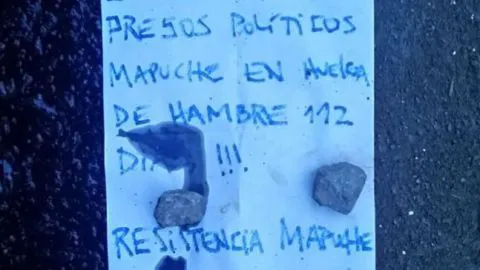 PRESOS POLÍTICOS
MAPUCHE EN HUELGA
DE HAMBRE 112
!!!
RESISTENCIA MAPUCHE